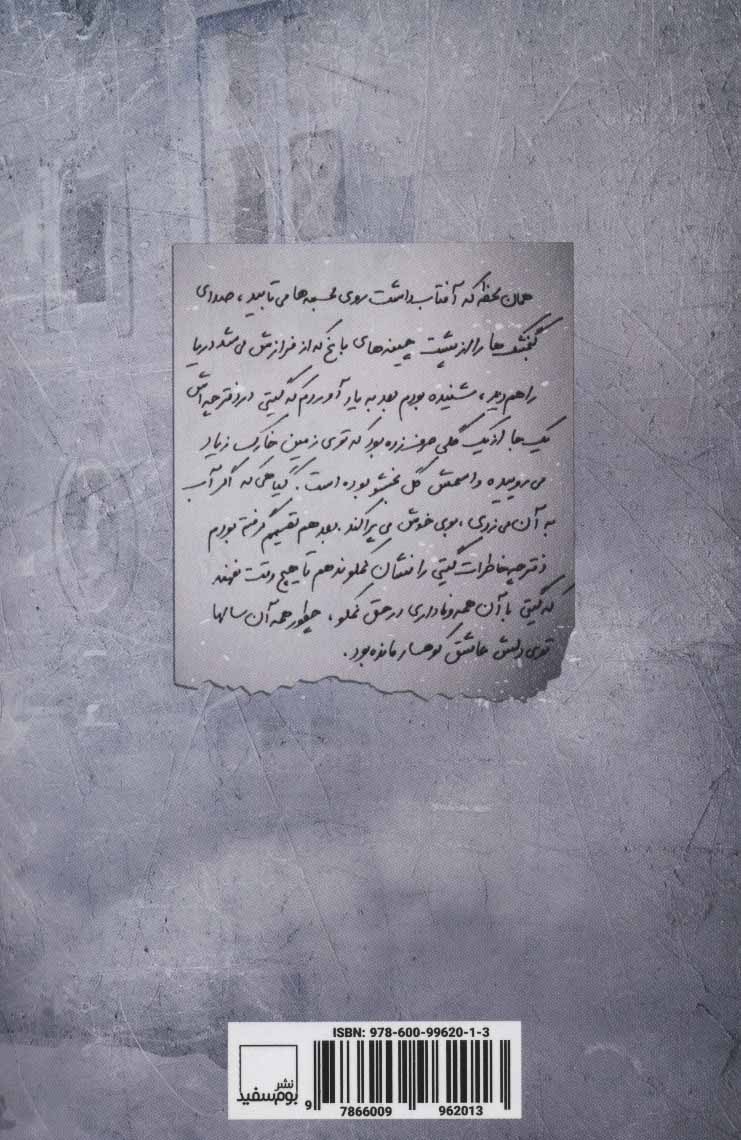 همان لحظه که آفتاب داشت روی مجسمه‌ها می‌تابید، صدای
گنجشک‌ها را از پشت چینه‌های باغ که از فرازش می‌شد دریا
را هم دید، شنیده بودم بعد به یاد آوردم که گیتی در دفترچه‌اش
یک جا از یک گلی حرف زده بود که توی زمین خارک زیاد
می‌روییده و اسمش گل بوده است. گیاهی که اگر آب
به آن می‌زدی، بوی خوش می‌پراکند. بعد هم تصمیم گرفته بودم
دفترچه خاطرات گیتی را نشان کملو ندهم تا هیچ وقت نفهمد
که گیتی با آن همه وفاداری در حق کملو، چطور همه آن سالها
توی دلش عاشق کوهسار مانده بود.
ISBN: 978-600-99620-1-3
نشر
بوم سفید
9 7866009 962013